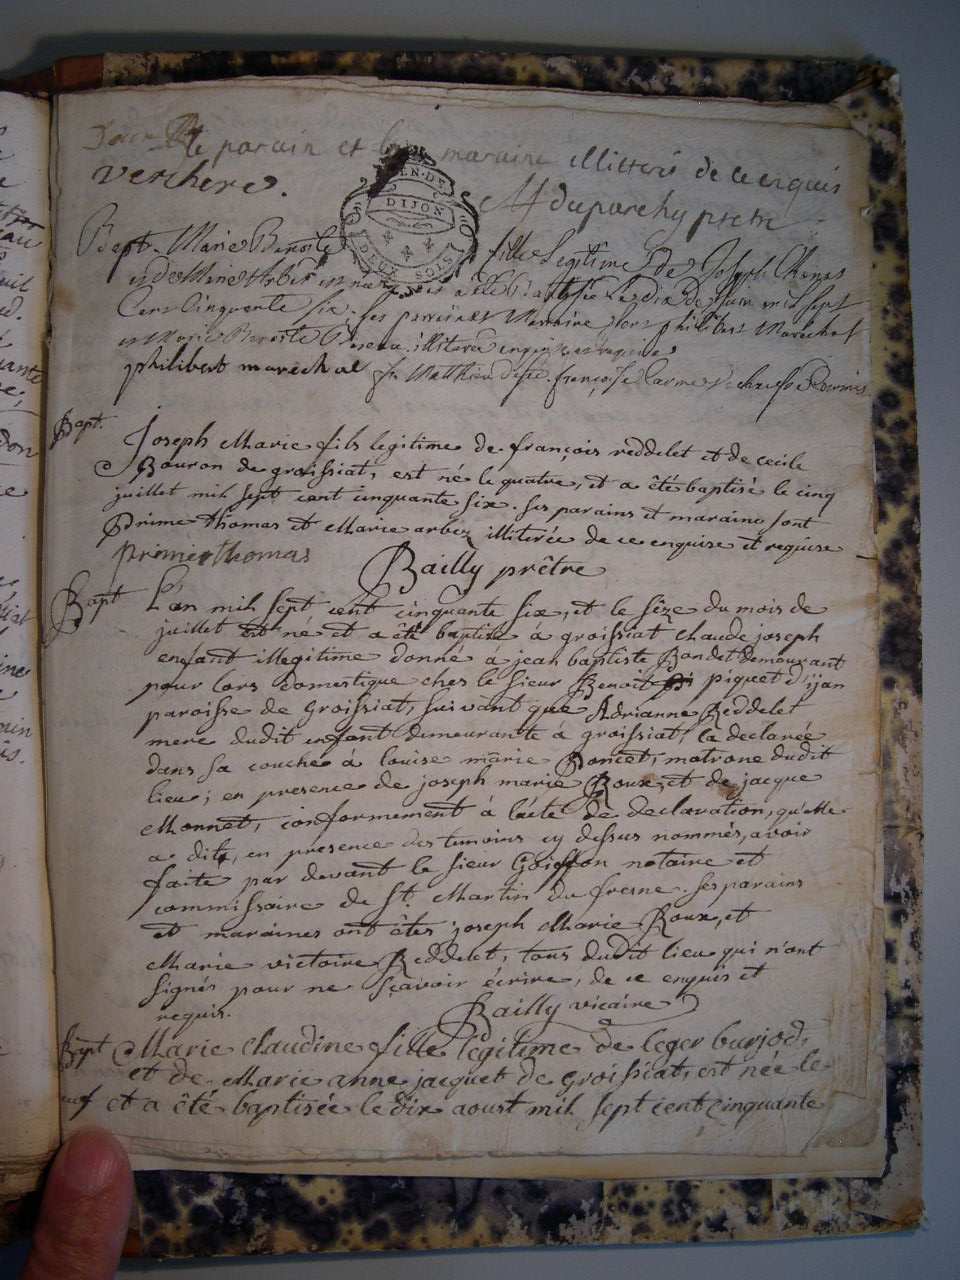 le parain et la maraine illiteré de ce enquis
verchere.
M duparchy pretre
GEN. DE
DIJON
DEUX SOLS
Bapt. Marie Benoite fille Legitime de Joseph
et de Marie a été Baptisée Le dix de Juin mil sept
Cens Cinquante Six. Ses parrain et Marraine sont philibert Marechal
et Marie Benoite illiterée enquise et requise
philibert marechal
Bapt.
Joseph Marie fils legitime de françois reddelet et de cecile
Bouron de groissiat, est né le quatre, et a été baptisé le cinq
juillet mil sept cent cinquante six. ses parains et maraine sont
Prime thomas et Marie arbez illiterée de ce enquise et requise
primier thomas
Bailly prêtre
Bapt
L'an mil sept cent cinquante six, et le sèze du mois de
juillet est né et a été baptisé à groissiat claude joseph
enfant illegitime donné à jean baptiste Bondet demeurant
pour lors domestique ches le sieur Benoit piquet d'ijan
paroisse de Groissiat, suivant que Adrianne Reddelet
mere dudit enfant demeurante à groissiat, la declarée
dans sa couche à louise marie Poncet, matrone dudit
lieu; en presence de joseph marie Roux, et de jacque
Monnet, conformement à l'acte de declaration, qu'elle
a dit, en presence des temoins cy dessus nommés, avoir
faite par devant le sieur Goiffon notaire et
commissaire de St. Martin du fresne. ses parains
et maraines ont êtes joseph Marie Roux, et
Marie victoire Reddelet, tous dudit lieu qui n'ont
signés pour ne sçavoir écrire, de ce enquis et
requis.
Bailly vicaire
Bapt
Marie Claudine fille legitime de leger burjod,
et de Marie anne jacquet de Groissiat, est née le
neuf et a été baptisée le dix aoust mil sept cent cinquante